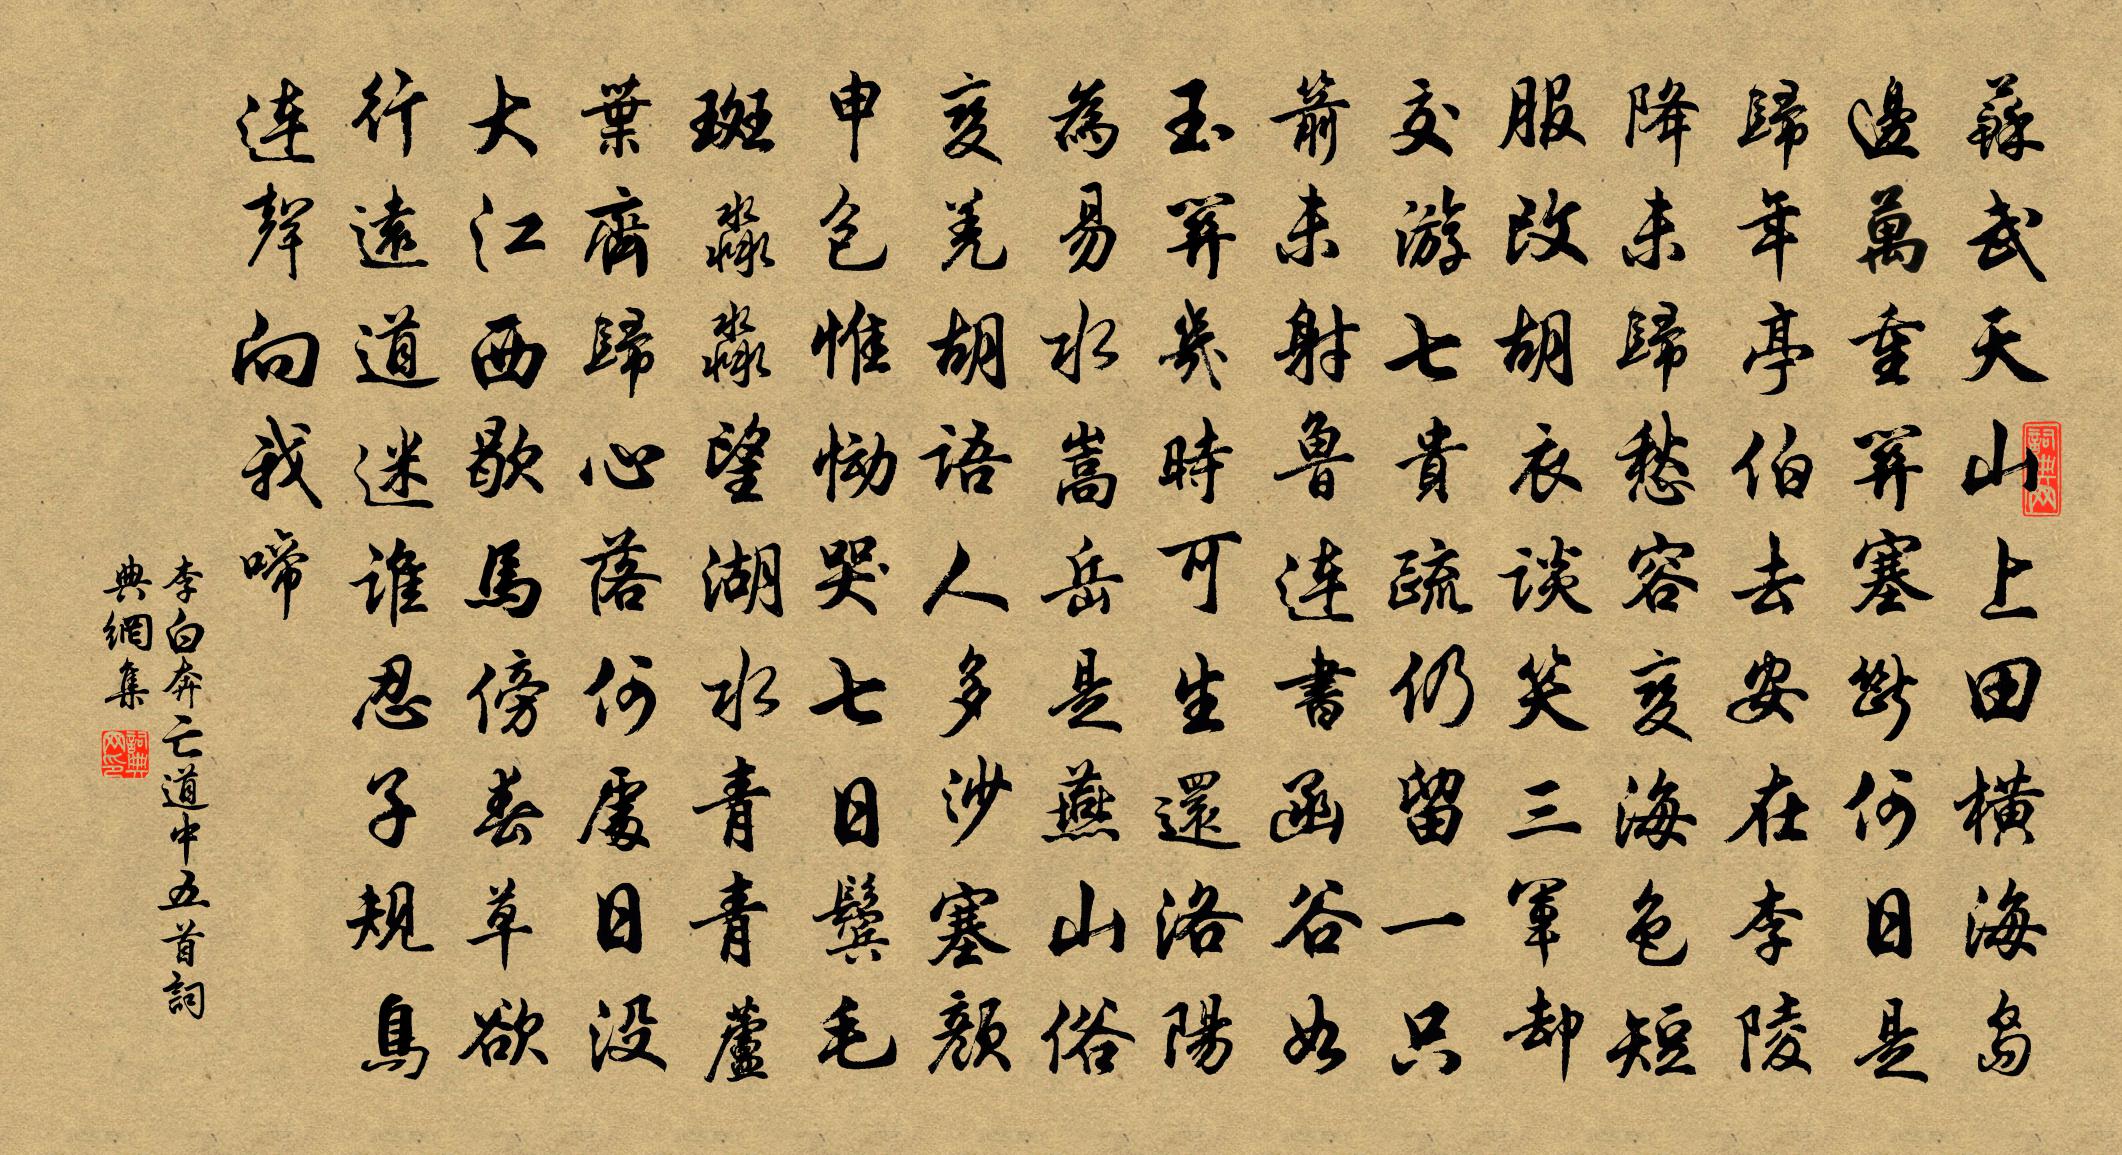 蘇武天山上田橫海島
邊萬重關塞斷何日是
歸年亭伯去安在李陵
降未歸愁容變海色短
服改胡衣談笑三軍却
交游七貴疏仍留一只
箭未射魯連書函谷如
玉關幾時可生還洛陽
為易水嵩岳是燕山俗
變羌胡語人多沙塞顏
申包惟慟哭七日鬢毛
斑淼淼望湖水青青蘆
葉齊歸心落何處日沒
大江西歇馬傍春草欲
行遠道迷誰忍子規鳥
連聲向我啼
李白奔亡道中五首詞
典網集
詞典网
詞典网印